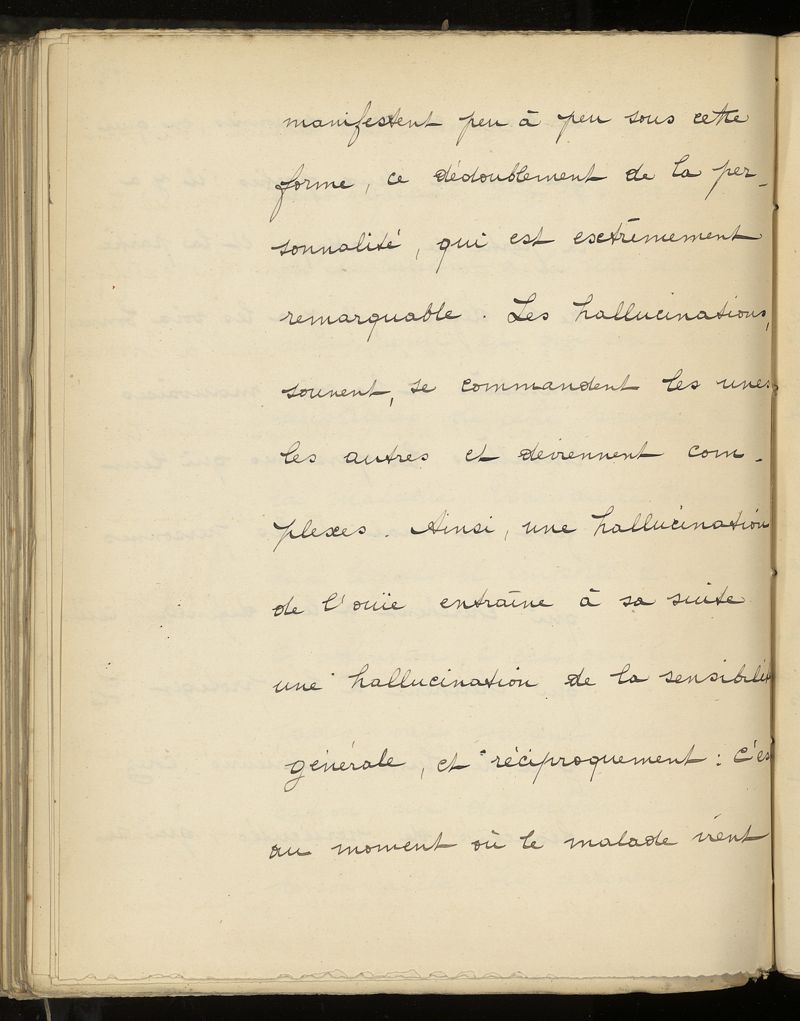 manifestent peu à peu sous cette
forme, ce dédoublement de la per-
sonnalité, qui est extrêmement
remarquable. Les hallucinations,
souvent, se commandent les unes
les autres et deviennent com-
plexes. Ainsi, une hallucination
de l'ouïe entraîne à sa suite
une hallucination de la sensibilité
générale, et réciproquement : c'est
au moment où le malade vient